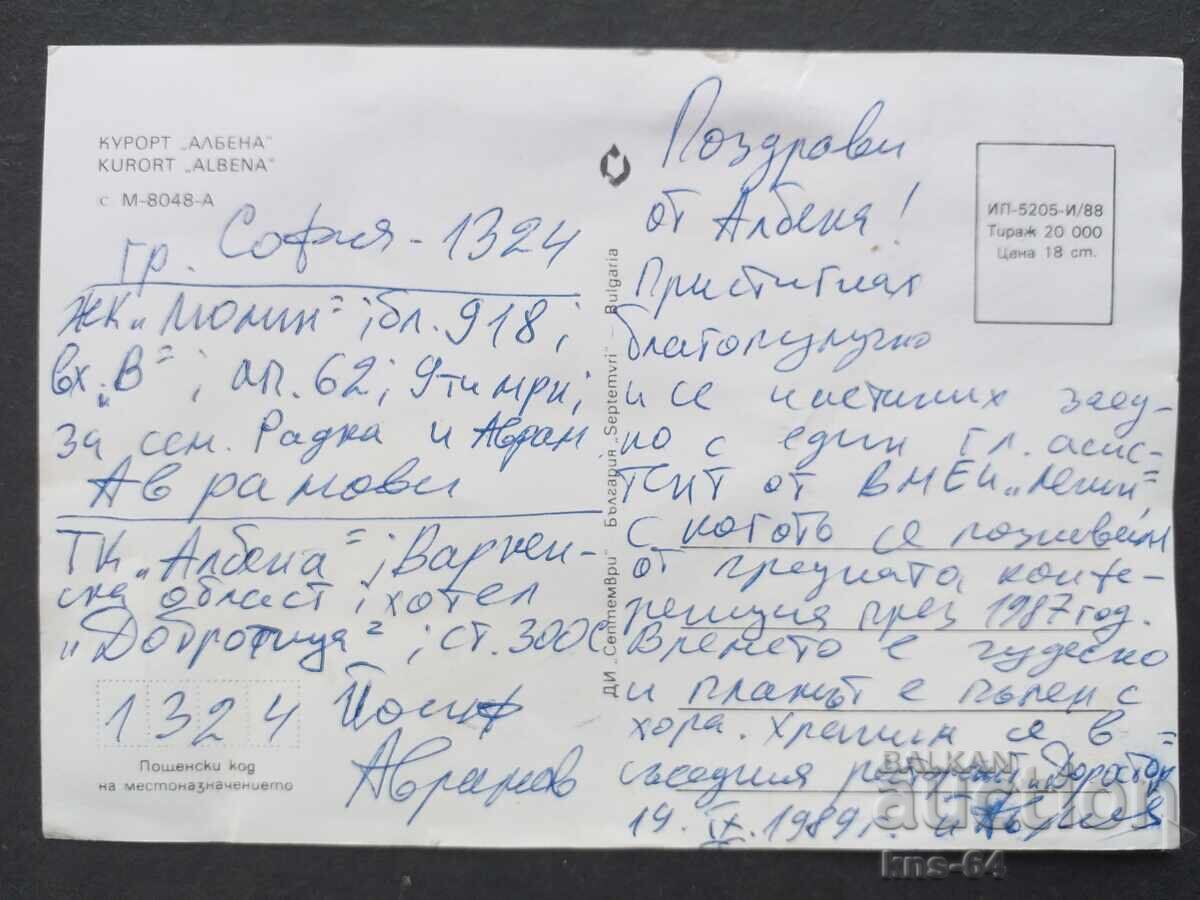 КУРОРТ „АЛБЕНА“
KURORT „ALBENA“
с М-8048-А
гр. София - 1324
ЖК „Люлин“; бл. 918;
вх. „В“; ап. 62; 9ти
за сем. Радка и Аврам
Аврамови
ТК „Албена“; Варнен-
ска област; хотел
„Добротица“; ст. 300
1324 Йосиф
Аврамов
Пощенски код
на местоназначението
ДИ „Септември“ България „Septemvri“ – Bulgaria
Поздрави
от Албена!
Пристигнах
благополучно
и се настаних заед-
но с един гл. асис-
тент от ВМЕИ „Ленин“
с когото се
от предната конфе-
ренция през 1987 год.
Времето е чудесно
и плажът е пълен с
хора. Храним се в
съседния ресторант „Доростор“
19. IX. 1989 г.
ИП-5205-И/88
Тираж 20 000
Цена 18 ст.
BALKAN
auction
kns-64